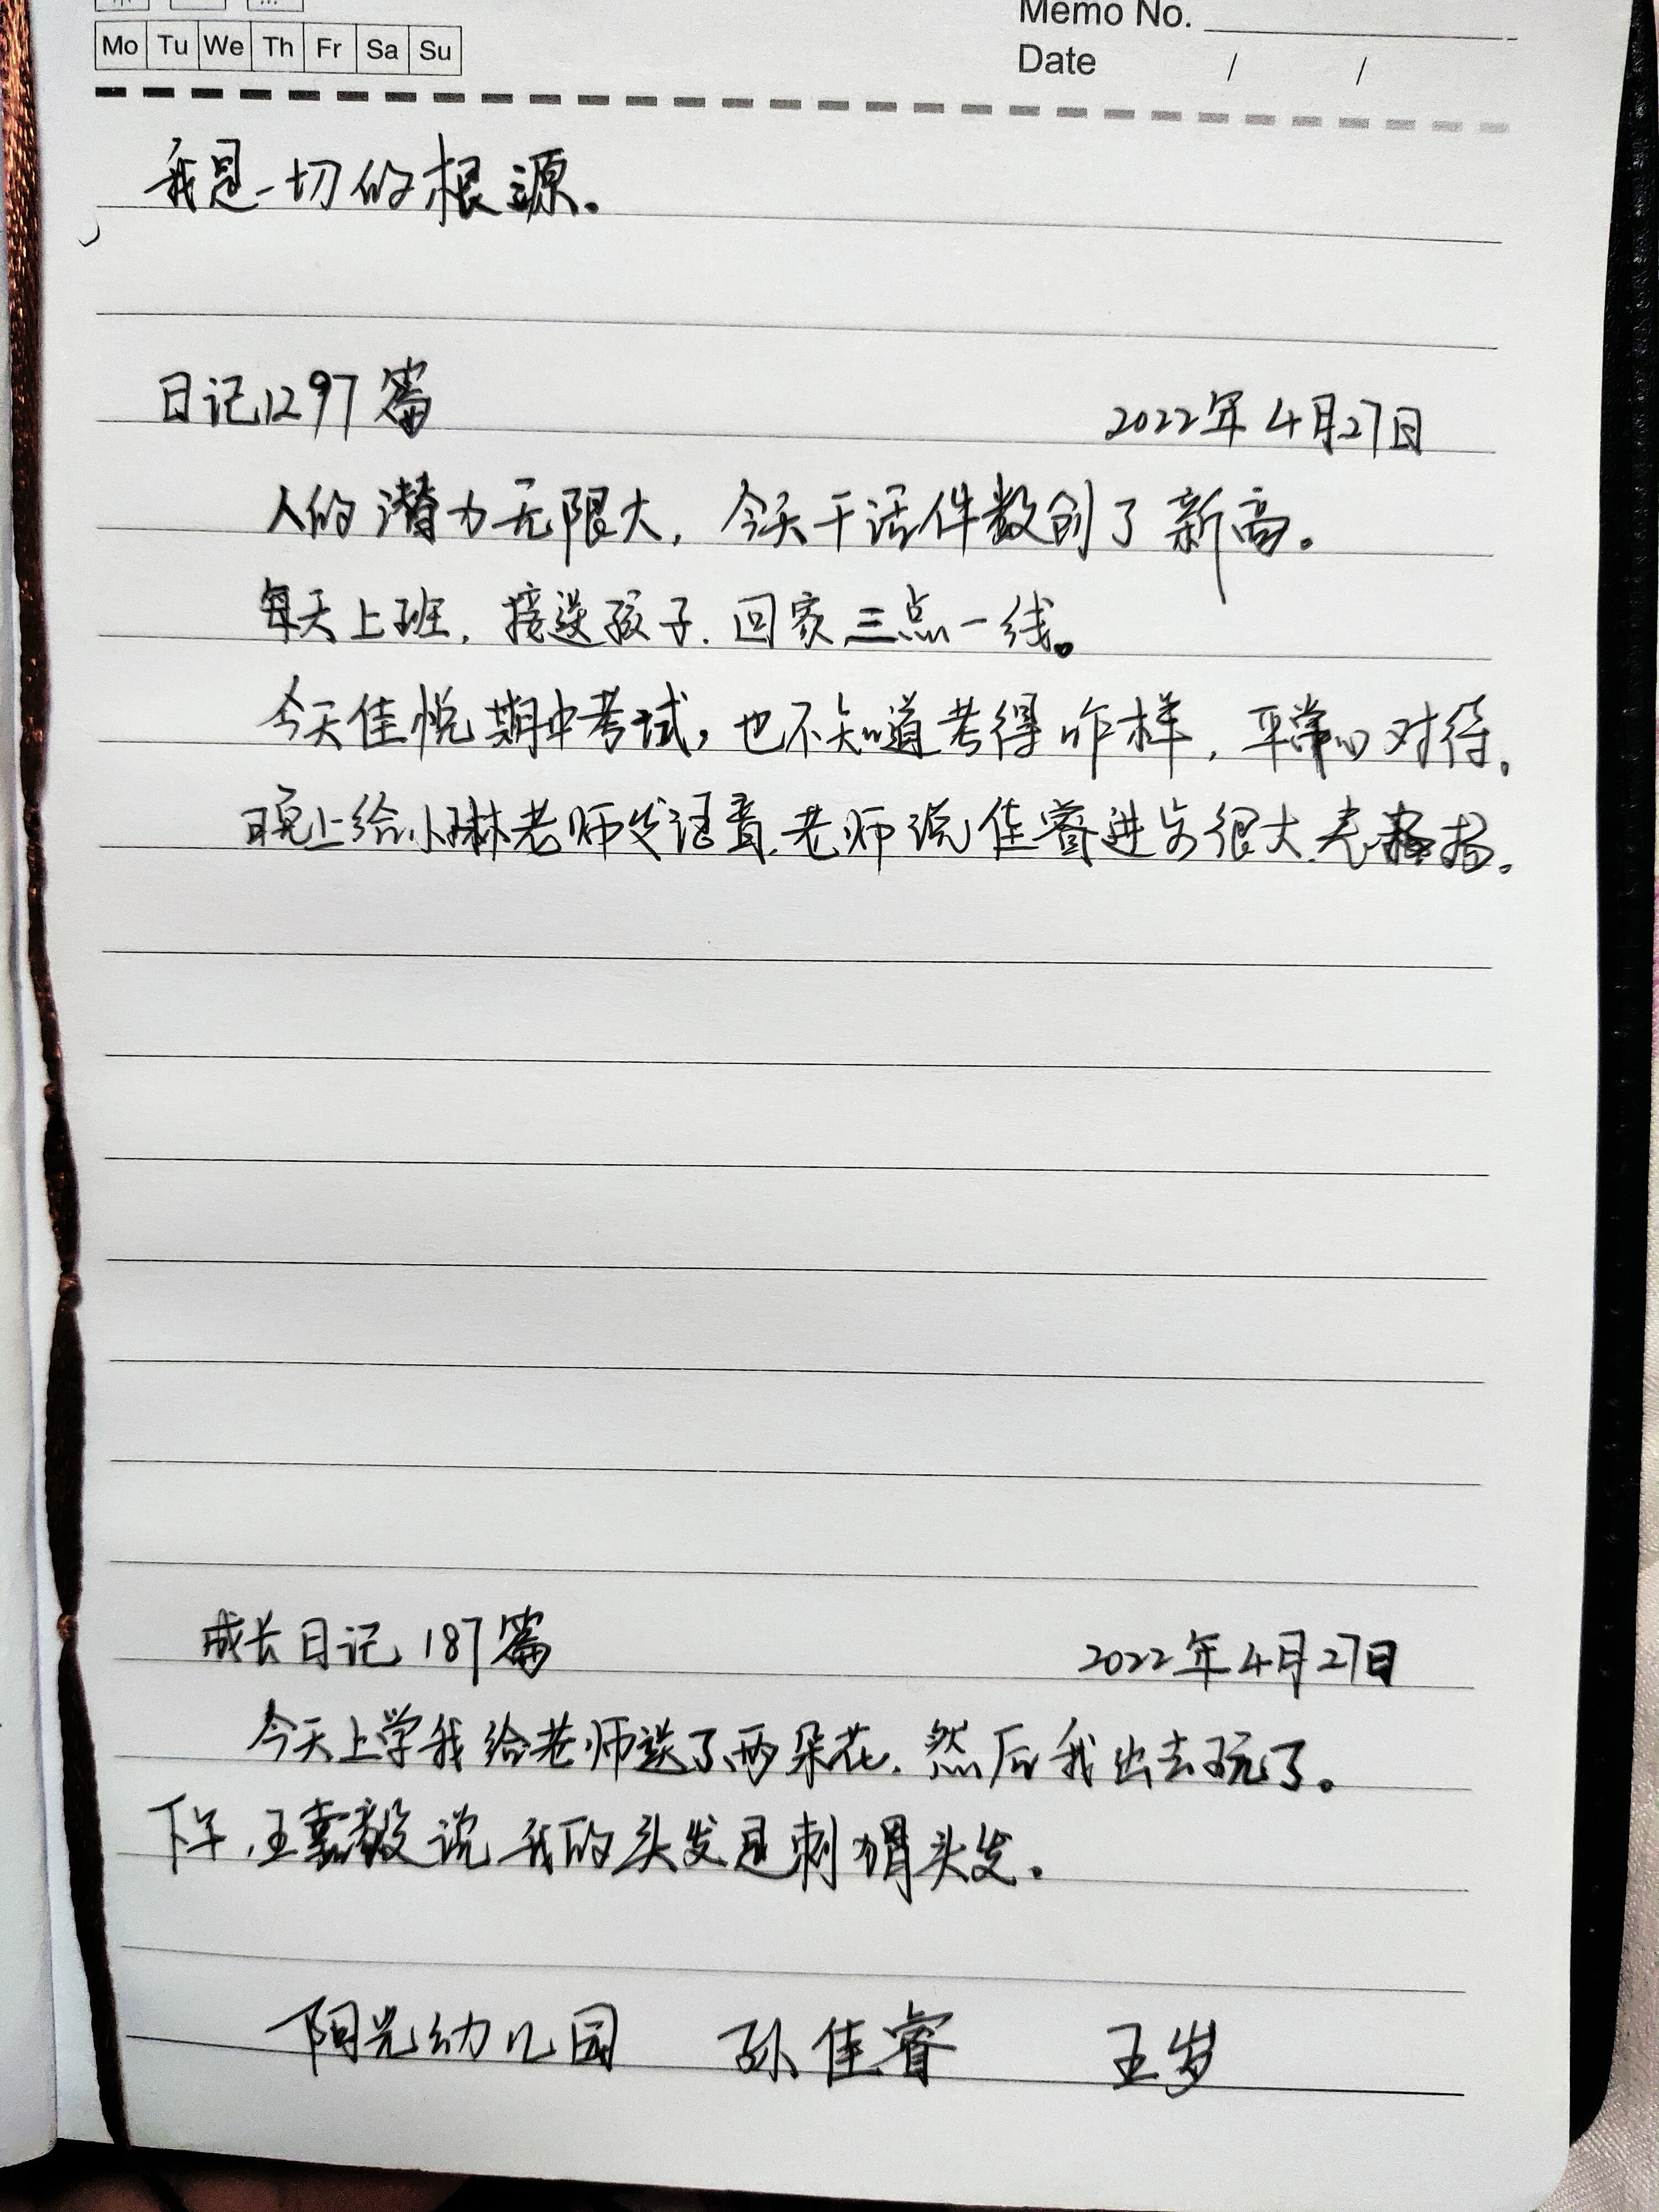 Mo Tu We Th Fr Sa Su
Memo No.
Date / /
我是一切的根源。
日记1297篇 2022年4月27日
人的潜力无限大，今天干活件数创了新高。
每天上班，接送孩子．回家三点一线。
今天佳悦期中考试，也不知道考得咋样，平常心对待。
晚上给小琳老师发语音，老师说佳睿进步很大，表扬。
成长日记 187篇 2022年4月27日
今天上学我给老师送了两朵花，然后我出去玩了。
下午，王嘉毅说我的头发是刺猬头发。
阳光幼儿园 孙佳睿 五岁